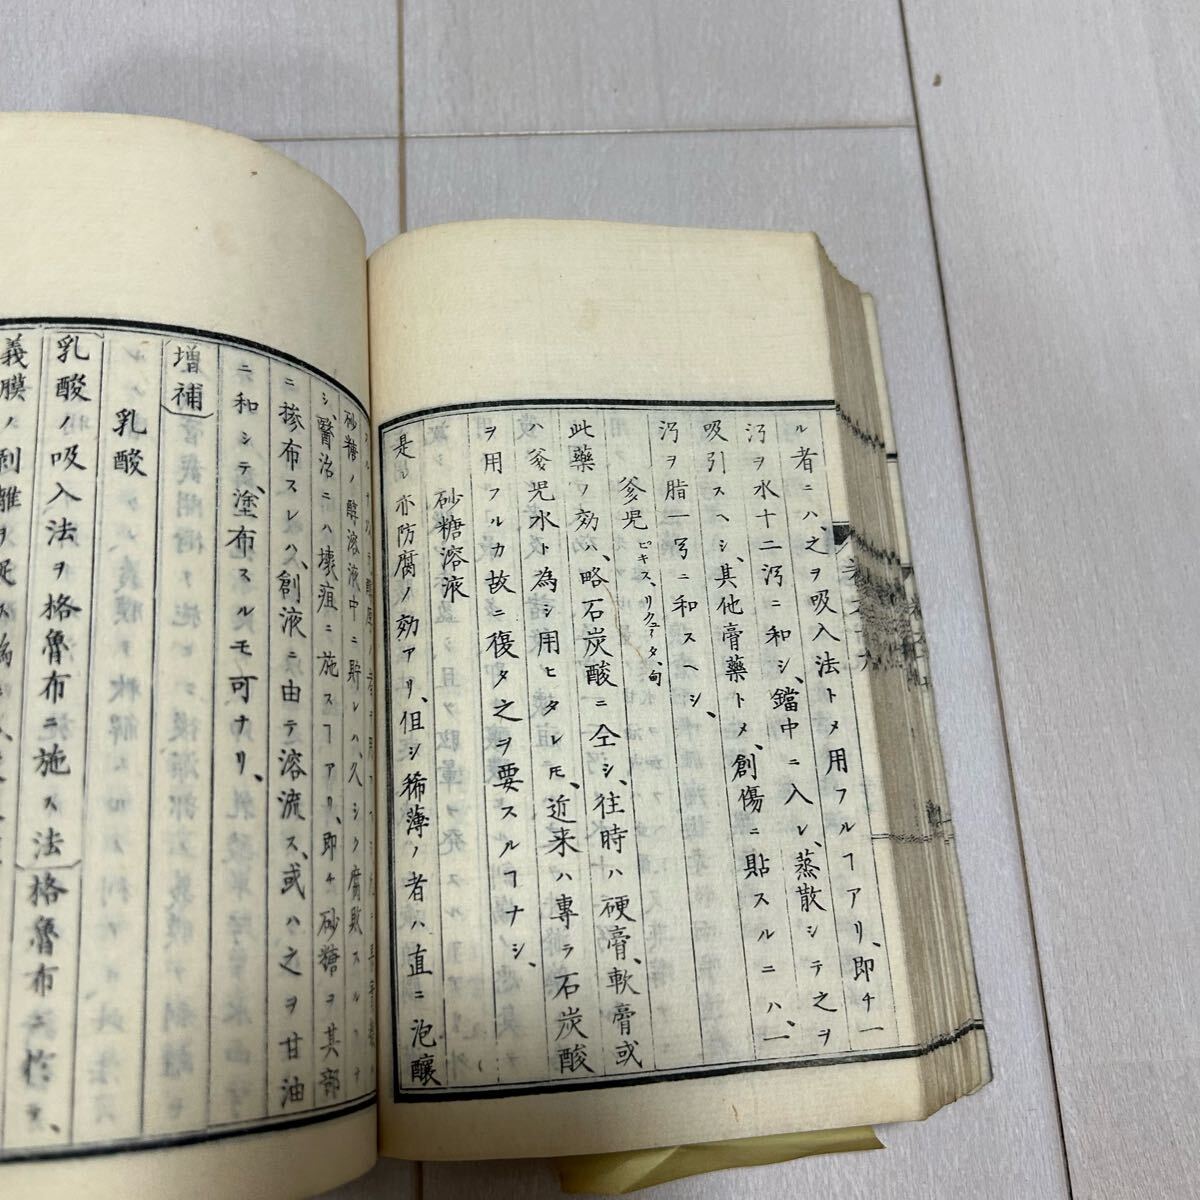 ル者ニハ、之ヲ吸入法トメ用フルヿアリ、即チ一
沔ヲ水十二沔ニ和シ、鐺中ニ入レ、蒸散シテ之ヲ
吸引スヘシ、其他膏藥トメ、創傷ニ貼スルニハ、一
沔ヲ脂一𠔃ニ和スヘシ、
爹児 ピキス、リクューダ、
此藥ノ効ハ、略石炭酸ニ仝シ、往時ハ硬膏、軟膏或
ハ爹児水ト為シ用ヒタレ𪜈、近来ハ專ラ石炭酸
ヲ用フルカ故ニ復タ之ヲ要スルヿナシ、
砂糖溶液
是レ亦防腐ノ効アリ、但シ稀薄ノ者ハ直ニ泡釀
砂糖ノ醇溶液中ニ貯レハ、久シク腐敗スルヿナ
シ、醫治ニハ壊疽ニ施スヿアリ、即チ砂糖ヲ其部
ニ摻布スレハ、創液ニ由テ溶流ス、或ハ之ヲ甘油
ニ和シテ、塗布スルモ可ナリ、
増補
乳酸
乳酸ノ吸入法ヲ格魯布ニ施ス法 格魯布ニ
義膜ノ剥離ヲ